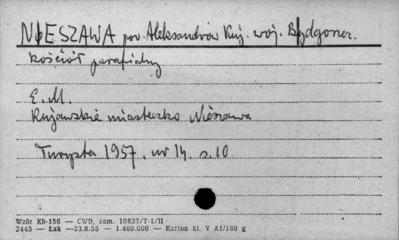 NIESZAWA pow. Aleksandrów Kuj. woj. Bydgoszcz.
kościół parafialny
E. M.
Kujawskie miasteczko Nieszawa
Turysta 1957. nr 14. s. 10
Wzór Kb-156 — CWD, zam. 10837/T-1/II
2445 — Łak — 23.8.55 — 1.400.000 — Karton kl. V A1/180 g